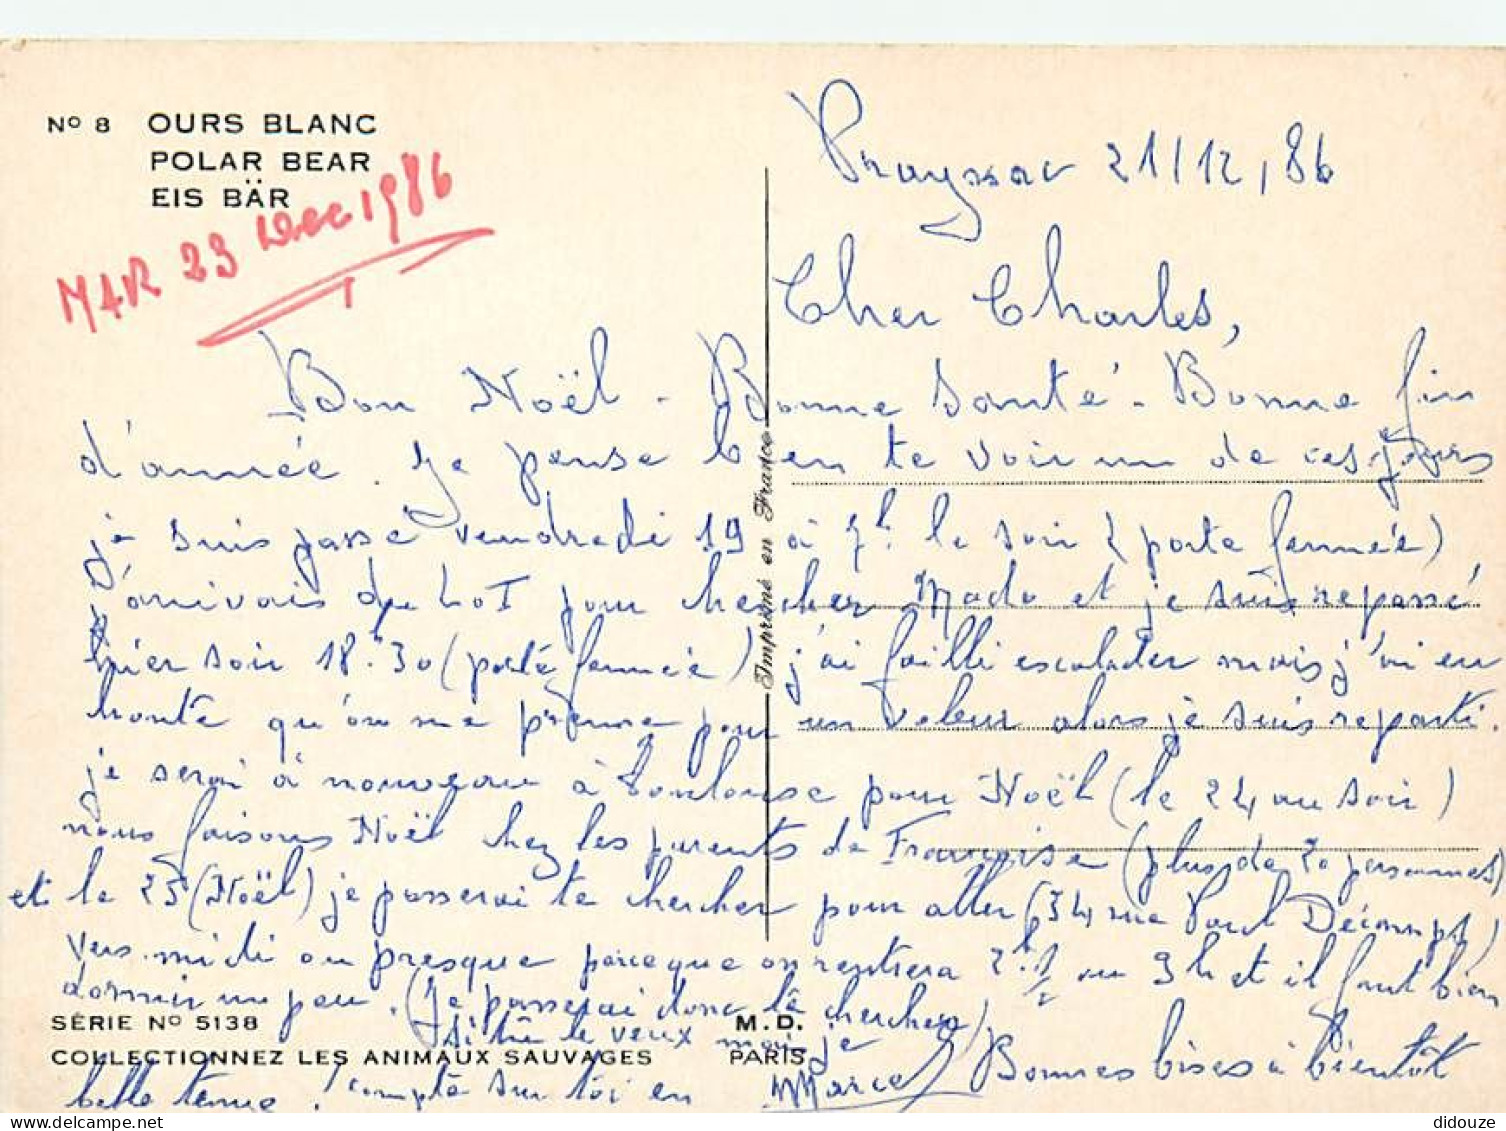 No 8 OURS BLANC
POLAR BEAR
EIS BÄR
MAR 23 Dec 1986
Prayssac 21/12/86
Cher Charles,
Bon Noël - Bonne Santé - Bonne fin
d'année. Je pense bien te voir un de ces jours
je suis passé vendredi 19 à 7h le soir (porte fermée)
J'arrivais du Lot pour chercher Mado et je suis repassé
hier soir 18.30 (porte fermée) j'ai failli escalader mais j'ai eu
honte qu'on me prenne pour un voleur alors je suis reparti.
je serai à nouveau à Toulouse pour Noël (le 24 au soir)
nous faisons Noël chez les parents de Françoise (plus de 20 personnes)
et le 25 (Noël) je passerai te chercher pour aller (34 rue Paul Décamps)
vers midi ou presque parce que on rentrera 2h 1/2 ou 3h et il faut bien
dormir un peu. (Je passerai donc te chercher)
si tu le veux moi je
compte sur toi en
belle tenue !
Bonnes bises à bientôt
Marcel
Imprimé en France
SÉRIE No 5138
COLLECTIONNEZ LES ANIMAUX SAUVAGES
M.D.
PARIS
didouze